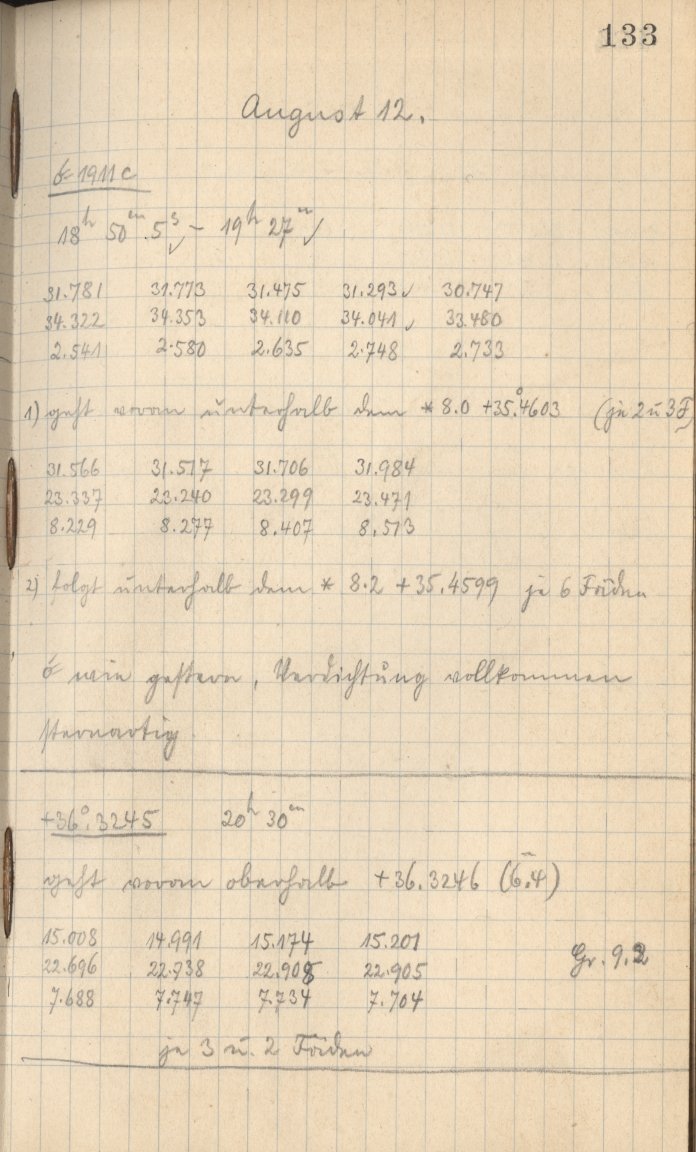 133
August 12.
☄ 1911 c
18ʰ 50ᵐ.5ˢ ✓ – 19ʰ 27ᵐ ✓
31.781 31.773 31.475 31.293 ✓ 30.747
34.322 34.353 34.110 34.041 ✓ 33.480
2.541 2.580 2.635 2.748 2.733
1) geht voran unterhalb dem * 8.0 +35°.4603 (je 2 u 3 F)
31.566 31.517 31.706 31.984
23.337 23.240 23.299 23.471
8.229 8.277 8.407 8.513
2) folgt unterhalb dem * 8.2 +35.4599 je 6 Fäden
☄ wie gestern, Verdichtung vollkommen
sternartig.
+36°.3245 20ʰ 30ᵐ
geht voran oberhalb +36.3246 (6.4)
15.008 14.991 15.174 15.201
22.696 22.738 22.908 22.905 Gr. 9.2
7.688 7.747 7.734 7.704
je 3 u. 2 Fäden